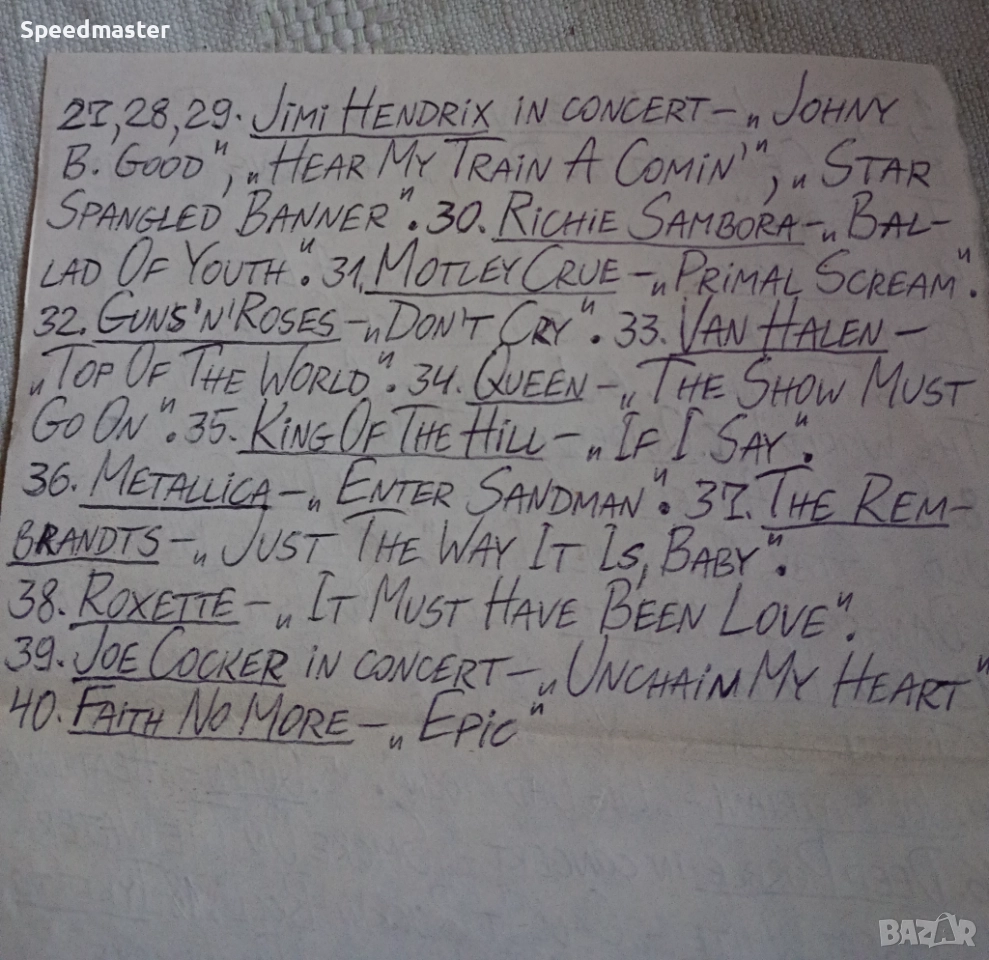 Speedmaster
27, 28, 29. JIMI HENDRIX IN CONCERT - „JOHNY
B. GOOD", „HEAR MY TRAIN A COMIN'", „STAR
SPANGLED BANNER". 30. RICHIE SAMBORA - „BAL-
LAD OF YOUTH". 31. MOTLEY CRUE - „PRIMAL SCREAM".
32. GUNS'N'ROSES - „DON'T CRY". 33. VAN HALEN -
„TOP OF THE WORLD". 34. QUEEN - „THE SHOW MUST
GO ON". 35. KING OF THE HILL - „IF I SAY".
36. METALLICA - „ENTER SANDMAN". 37. THE REM-
BRANDTS - „JUST THE WAY IT IS, BABY".
38. ROXETTE - „IT MUST HAVE BEEN LOVE".
39. JOE COCKER IN CONCERT - „UNCHAIM MY HEART"
40. FAITH NO MORE - „EPIC"
BAZAR